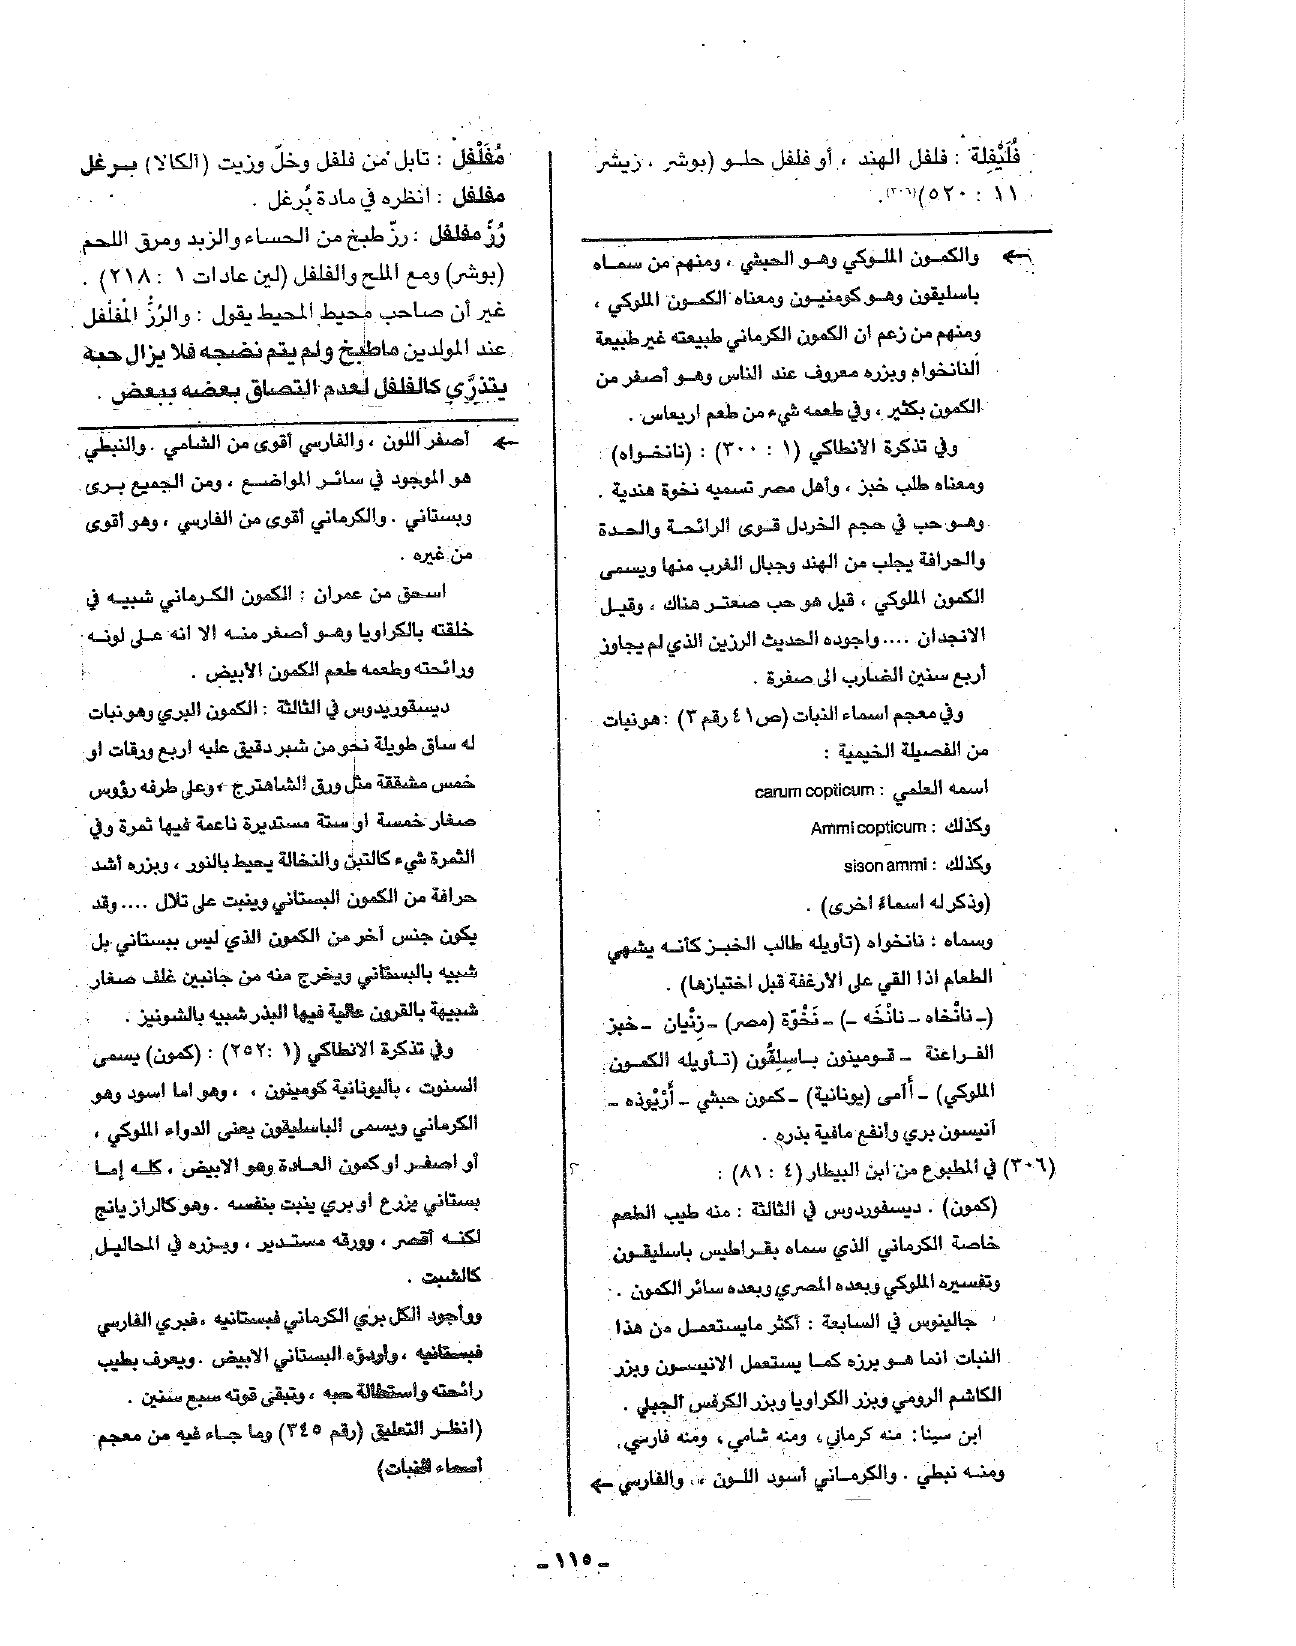 فُلَيْفِلة : فلفل الهند ، أو فلفل حلو (بوشر ، زيشر
١١ : ٥٢٠)(٣٠٦).
والكمون الملوكي وهو الحبشي ، ومنهم من سماه
باسليقون وهو كومنيون ومعناه الكمون الملوكي ،
ومنهم من زعم ان الكمون الكرماني طبيعته غير طبيعة
النانخواه وبزره معروف عند الناس وهو أصفر من
الكمون بكثير ، وفي طعمه شيء من طعم اريعاس .
وفي تذكرة الانطاكي (١ : ٣٠٠) : (نانخواه)
ومعناه طلب خبز ، وأهل مصر تسميه نخوة هندية .
وهو حب في حجم الخردل قوى الرائحة والحدة
والحرافة يجلب من الهند وجبال الغرب منها ويسمى
الكمون الملوكي ، قيل هو حب صعتر هناك ، وقيل
الانجدان .... واجوده الحديث الرزين الذي لم يجاوز
أربع سنين الضارب الى صفرة .
وفي معجم اسماء النبات (ص٤١ رقم ٣) : هو نبات
من الفصيلة الخيمية :
اسمه العلمي : carum copticum
وكذلك : Ammi copticum
وكذلك : sison ammi
(وذكر له اسماءً اخرى) .
وسماه : نانخواه (تأويله طالب الخبز كأنه يشهي
الطعام اذا القي على الأرغفة قبل اختبازها) .
(ـ نانْخاه ـ نانْخَه ـ) ـ نَخْوَة (مصر) ـ زِنْيان ـ خبز
الفراعنة ـ قومينون باسيلِقُون (تأويله الكمون
الملوكي) ـ أآمى (يونانية) ـ كمون حبشي ـ أَرْيُوذه ـ
آنيسون بري وأنفع مافية بذره .
(٣٠٦) في المطبوع من ابن البيطار (٤ : ٨١) :
(كمون) . ديسقوردوس في الثالثة : منه طيب الطعم
خاصة الكرماني الذي سماه بقراطيس باسليقون
وتفسيره الملوكي وبعده المصري وبعده سائر الكمون .
جالينوس في السابعة : أكثر مايستعمل من هذا
النبات انما هو برزه كما يستعمل الانيسون وبزر
الكاشم الرومي وبزر الكراويا وبزر الكرفس الجبلي .
ابن سينا: منه كرماني، ومنه شامي، ومنه فارسي،
ومنه نبطي . والكرماني أسود اللون ، والفارسي
مُفَلْفَل : تابل من فلفل وخلّ وزيت (الكالا) برغل
مفلفل : انظره في مادة بُرغل .
رُزّ مفلفل : رزّ طبخ من الحساء والزبد ومرق اللحم
(بوشر) ومع الملح والفلفل (لين عادات ١ : ٢١٨) .
غير أن صاحب محيط المحيط يقول : والرُزّ المْفلْفل
عند المولدين ماطبخ ولم يتم نضجه فلا يزال حبه
يتذرَّى كالفلفل لعدم التصاق بعضه ببعض .
أصفر اللون ، والفارسي أقوى من الشامي . والنبطي
هو الموجود في سائر المواضع ، ومن الجميع برى
وبستاني . والكرماني أقوى من الفارسي ، وهو أقوى
من غيره .
اسحق من عمران : الكمون الكرماني شبيه في
خلقته بالكراويا وهو أصفر منه الا انه على لونه
ورائحته وطعمه طعم الكمون الابيض .
ديسقوريدوس في الثالثة : الكمون البري وهو نبات
له ساق طويلة نحو من شبر دقيق عليه اربع ورقات او
خمس مشققة مثل ورق الشاهترج ، وعلى طرفه رؤوس
صغار خمسة او ستة مستديرة ناعمة فيها ثمرة وفي
الثمرة شيء كالتبن والنخالة يحيط بالنور ، وبزره أشد
حرافة من الكمون البستاني وينبت على تلال .... وقد
يكون جنس آخر من الكمون الذي ليس ببستاني بل
شبيه بالبستاني ويخرج منه من جانبين غلف صغار
شبيهة بالقرون عالية فيها البذر شبيه بالشونيز .
وفي تذكرة الانطاكي (١ :٢٥٢) : (كمون) يسمى
السنوت ، باليونانية كومينون ، ، وهو اما اسود وهو
الكرماني ويسمى الباسليقون يعنى الدواء الملوكي ،
أو اصفر او كمون العادة وهو الابيض ، كله إما
بستاني يزرع او بري ينبت بنفسه . وهو كالرازيانج
لكنه أقصر ، وورقه مستدير ، وبزره في المحاليل
كالشبت .
وواجود الكل بري الكرماني فبستانيه ، فبري الفارسي
فبستانيه ، واردؤه البستاني الابيض . ويعرف بطيب
رائحته واستطالة حبه ، وتبقى قوته سبع سنين .
(انظر التعليق (رقم ٣٤٥) وما جاء فيه من معجم
أسماء النبات)
ـ ١١٥ ـ